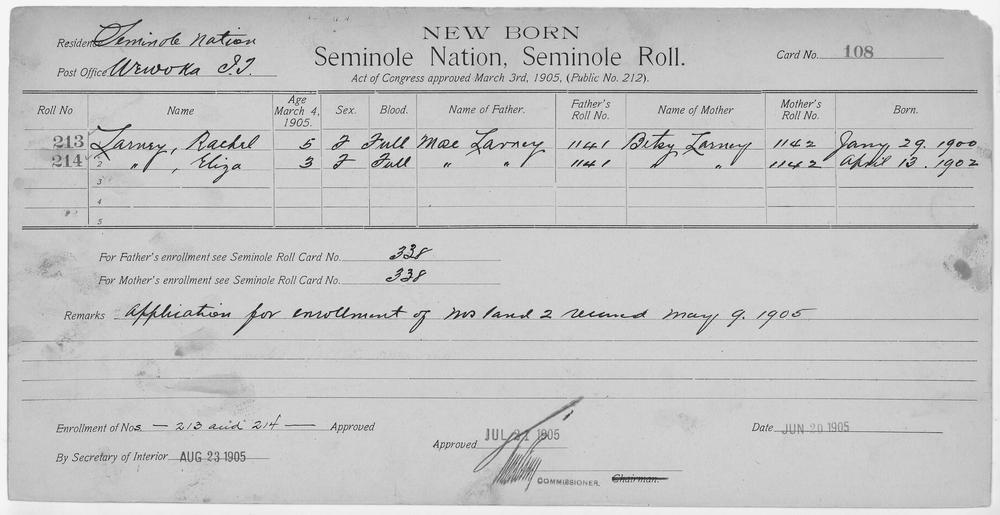 NEW BORN
Seminole Nation, Seminole Roll.
Act of Congress approved March 3rd, 1905, (Public No. 212).
Residence Seminole Nation
Post Office Wewoka I.T.
Card No. 108
Roll No Name Age March 4, 1905. Sex. Blood. Name of Father. Father's Roll No. Name of Mother Mother's Roll No. Born.
213 Larney, Rachel 5 F Full Moe Larney 1141 Betsy Larney 1142 Jany 29. 1900
214 2 " , Eliza 3 F Full " " 1141 " " 1142 April 13. 1902
3
4
5
For Father's enrollment see Seminole Roll Card No. 338
For Mother's enrollment see Seminole Roll Card No. 338
Remarks Application for enrollment of Nos 1 and 2 received May 9. 1905
Enrollment of Nos. — 213 and 214 — Approved
By Secretary of Interior AUG 23 1905
Approved JUL 21 1905
COMMISSIONER. Chairman.
Date JUN 20 1905